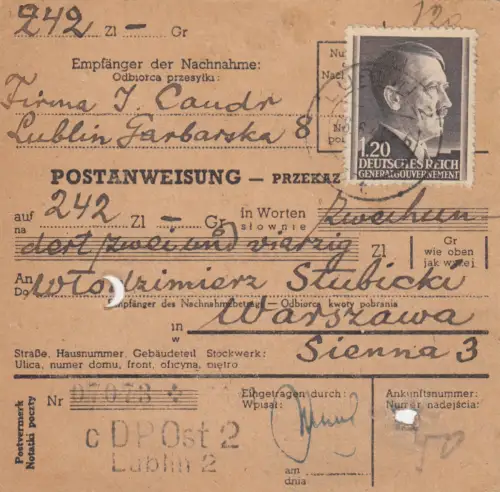 242 Zl — Gr
120
Empfänger der Nachnahme:
Odbiorca przesyłki:
Firma J. Caudr
Lublin Garbarska 8
1.20
DEUTSCHES REICH
GENERALGOUVERNEMENT
POSTANWEISUNG — PRZEKAZ
auf 242 Zl — Gr in Worten Zweihun
na słownie
dert (zwei und) vierzig Zl Gr
wie oben
jak wyżej
An Włodzimierz Stubicki
Do
Empfänger des Nachnahmebetrags — Odbiorca kwoty pobrania
in Warszawa
w
Straße, Hausnummer, Gebäudeteil Stockwerk: Sienna 3
Ulica, numer domu, front, oficyna, piętro
Postvermerk
Notatki poczty
Nr 07073
Eingetragen durch:
Wpisał:
Ankunftsnummer:
Numer nadejścia:
c DP Ost 2
Lublin 2
am
dnia